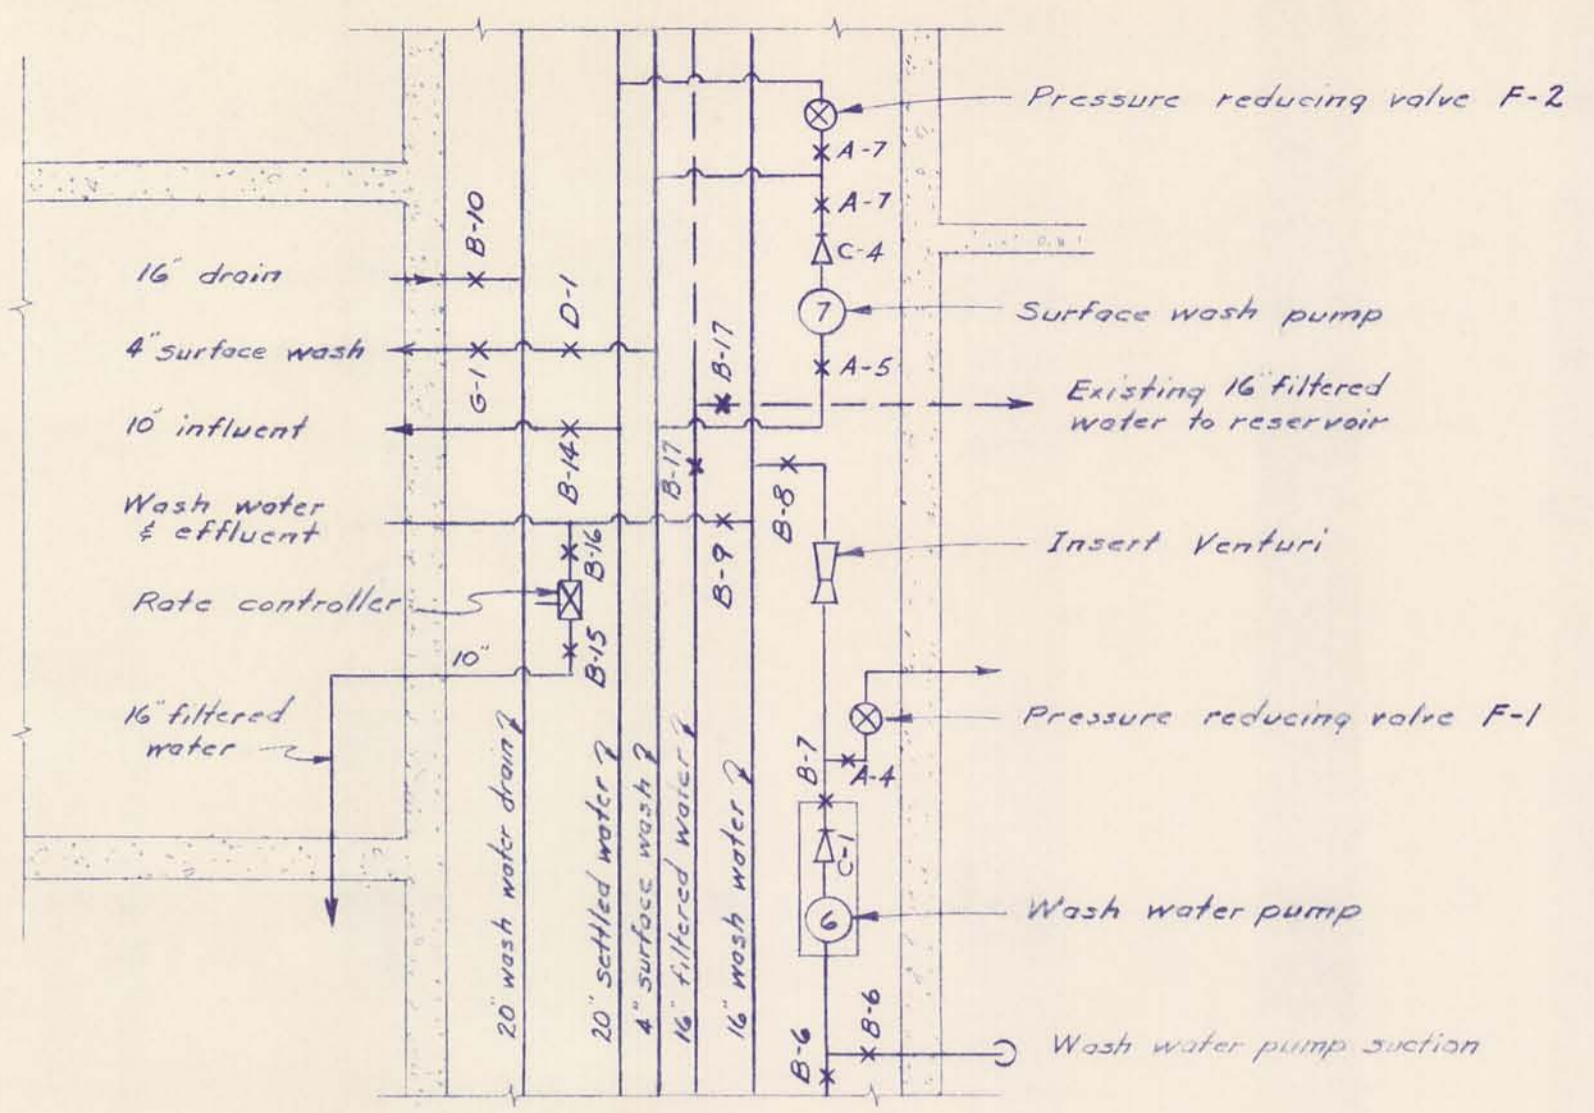 Pressure reducing valve F-2
A-7
A-7
B-10
C-4
16" drain
D-1
7
Surface wash pump
4" surface wash
G-1
B-17
A-5
Existing 16" filtered
water to reservoir
10" influent
B-14
B-17
B-8
Wash water
& effluent
B-16
B-9
Insert Venturi
Rate controller
B-15
10"
16" filtered
water
Pressure reducing valve F-1
B-7
A-4
C-1
20" wash water drain
20" settled water
4" surface wash
16" filtered water
16" wash water
6
Wash water pump
B-6
B-6
Wash water pump suction